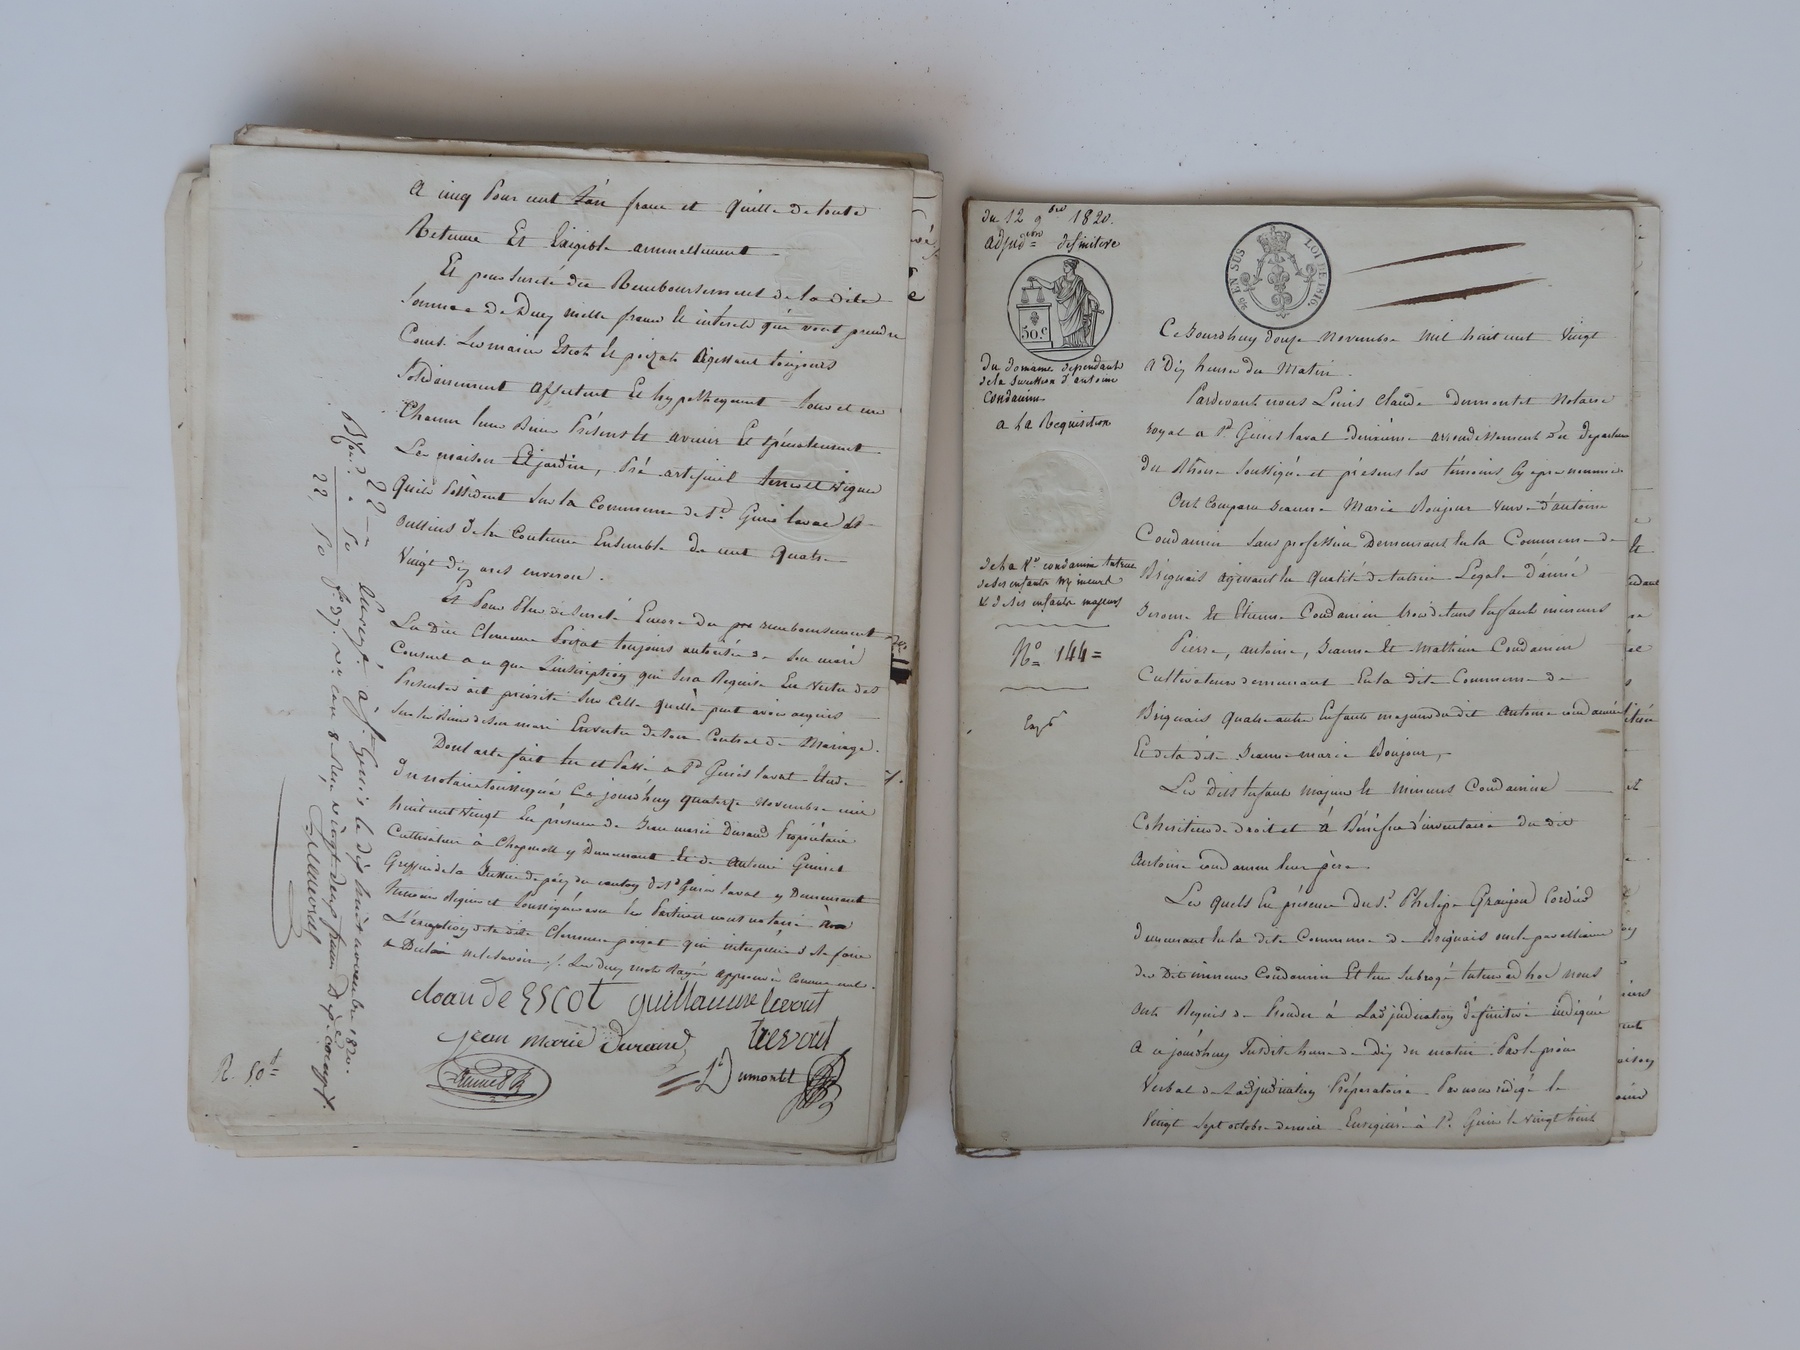 a cinq pour cent l'an franc et quitte de toute
Retenue Et Exigible annuellement
Et pour sureté du Remboursement de la dite
Somme de Deux mille francs et interets qui vont prendre
Cours. Les mariés Escot et poizat agissant toujours
Solidairement affectent Et hypothequent tous et un
Chacun leurs Biens Présents et avenir Et spécialement
Les maison Et jardin, Pré artificiel terre et vigne
Quils Possèdent sur la Commune de St. Genis laval et
oullins de la Contenue Ensemble de cent quatre
Vingt dix ares environ.
Et Pour Plus de sureté Encore du remboursement
La Dite Clemence Poizat toujours autorisée de son mari
Consent a ce que L'inscription qui sera Requise En vertu des
Presentes ait priorité sur celle quelle peut avoir acquis
sur les Biens de son mari En vertu de son Contrat de Mariage.
Dont acte fait lu et Passé a St. Genis laval Etude
Du notaire soussigné Ce jourd'huy quatorze novembre mil
huit cent vingt En présence de Jean marie Durand Propriétaire
Cultivateur à Chaponost y Demeurant Et de antoine Guinet
Greffier de la Justice de paix du canton de St. Genis laval y Demeurant
temoins Requis et soussignés avec les Parties et nous notaire
L'exception de la dite Clemence poizat qui interpellée de le faire
a Déclaré ne le savoir ./. Les deux mots Rayés approuvés Comme nuls.
Jean de ESCOT guillaume
Jean Marie Durand
Guinet
Dumontet
R. 50c=
Enregé. à St. Genis le dix huit novembre 1820.
Reçu vingt deux francs
22 -
22, 50
du 12 9bre 1820.
adjudion= définitive
50.c
EN SUS
LOI DE 1816
du domaine dépendant
de la succession d'antoine
Condamin
a la Requisition
de la Ve condamin tutrice
de ses enfants mineurs
et de ses enfants majeurs
No= 144=
Exp.
Ce Jourdhuy douze Novembre mil huit cent vingt
a Dix heures du Matin.
Pardevant nous Louis Claude Dumontet Notaire
royal a St. Genis laval deuxième arrondissement du departement
du Rhone soussigné et présens les témoins cy apres nommés
Ont Comparu Jeanne Marie Boujour veuve d'antoine
Condamin Sans profession Demeurant En la Commune de
Brignais agissant En Qualité de tutrice Legale d'aimé
Jerome Et Etienne Condamin trois de leurs Enfants mineurs
Pierre, antoine, Jeanne Et Mathieu Condamin
Cultivateurs demeurant En la dite Commune de
Brignais quatre autres Enfants majeurs du dit antoine condamin
Et de la dite Jeanne marie Boujour,
Les Dits Enfants majeurs et mineurs Condamin
Cohéritiers de droit et à Bénéfice d'inventaire du dit
antoine condamin leur père
Les quels En présence du Sr. Philipe Granjon Cordier
demeurant En la dite Commune de Brignais
des Dits mineurs Condamin Et leur subrogé tuteur ad hoc nous
ont Requis de Proceder à L'adjudication définitive indiquée
a ce jourd'huy susdite heure de dix du matin. Par le procès
verbal de L'adjudication Préparatoire Par nous rédigé le
Vingt Sept octobre dernier Enregistré à St. Genis le vingt huit